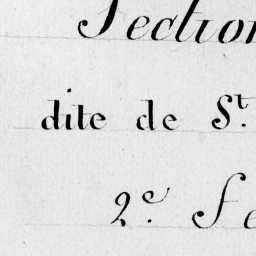 Section
dite de St.
2e. Fe